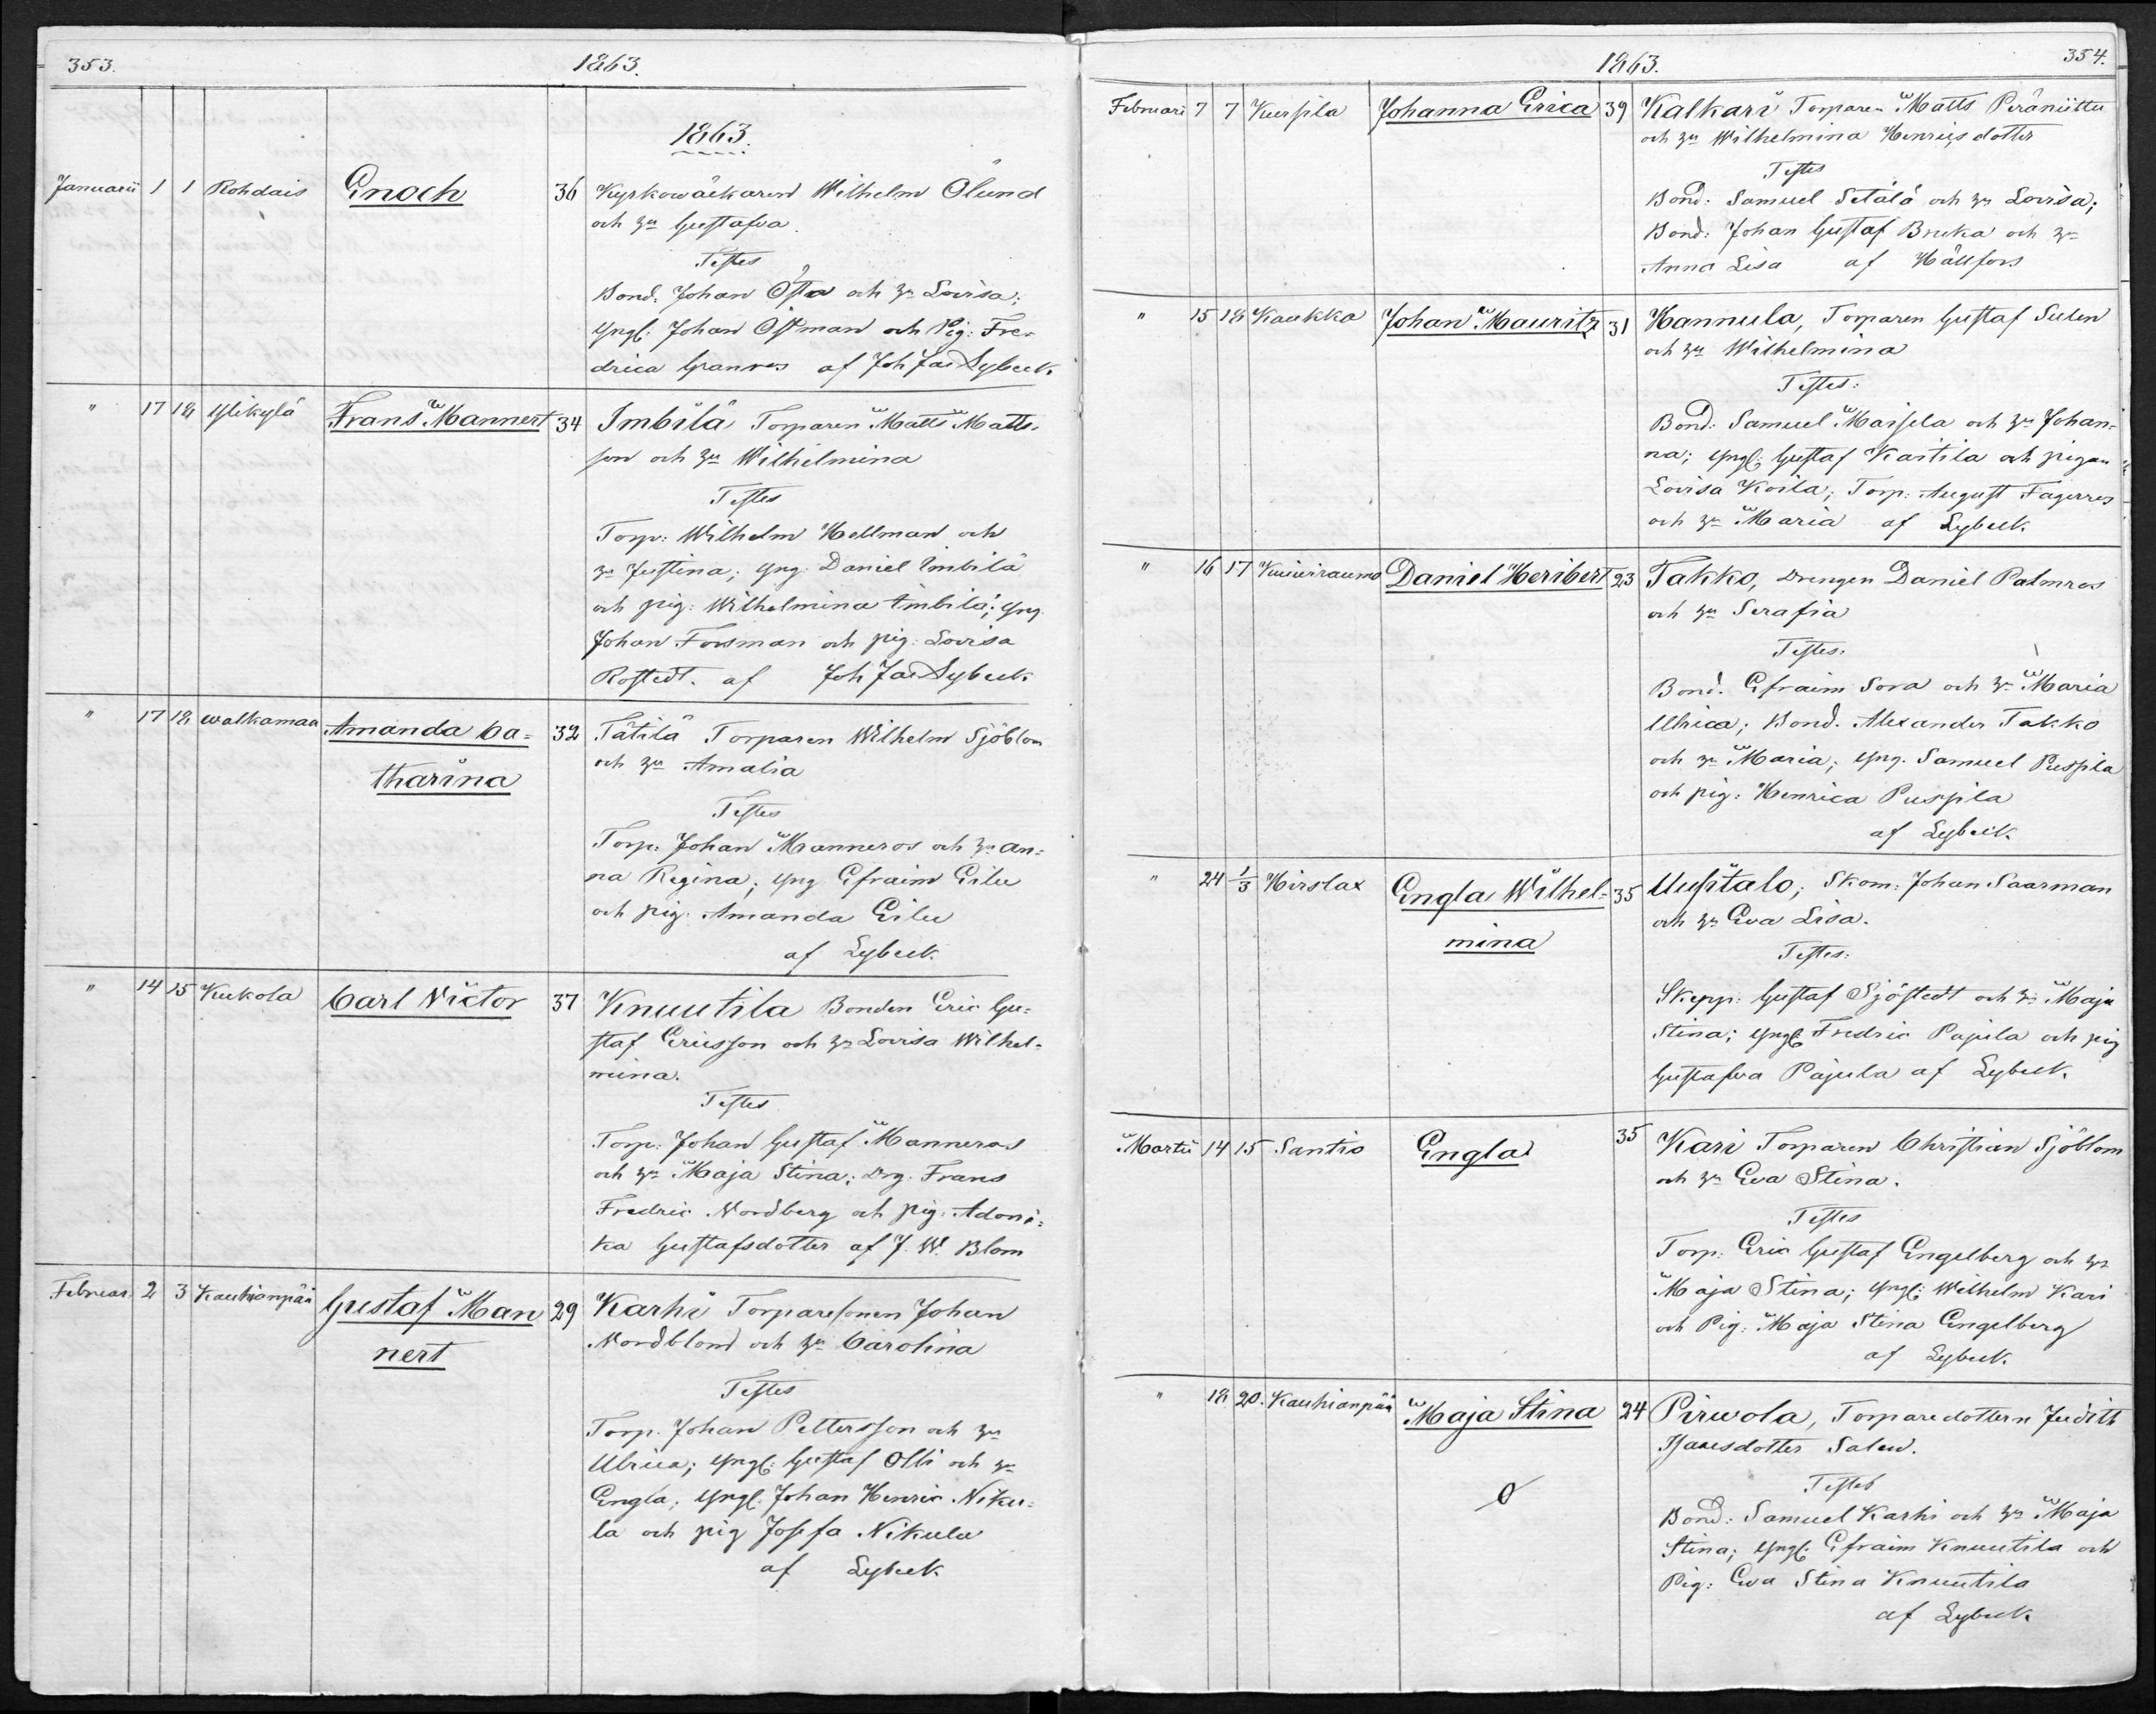 353.
1863.
1863.
Januarii 1 1 Rohdais Enoch 36 Kyrkowäckaren Wilhelm Ölund
och hu Gustafva.
Testes
Bond. Johan Östa och hu Lovisa;
Yngl: Johan Östman och Pig: Fre-
drica Granros af Joh Jac Lybeck.
" 17 18 Ylikylä Frans Mannert 34 Imbilä Torparen Matts Matts-
son och hu Wilhelmina
Testes
Torp: Wilhelm Hellman och
hu Justina; Yng. Daniel Imbilä
och pig: Wilhelmina Imbilä; Yng.
Johan Forsman och pig: Lovisa
Rostedt. af Joh Jac Lybeck
" 17 18 Walkamaa Amanda Ca= 32 Tätilä Torparen Wilhelm Sjöblom
tharina
och hu Amalia
Testes
Torp: Johan Manneros och hu An=
na Regina; Yng Efraim Eilu
och pig: Amanda Eilu
af Lybeck.
" 14 15 Kukola Carl Victor 37 Knuutila Bonden Eric Gu=
staf Ericsson och hu Lovisa Wilhel=
mina.
Testes
Torp: Johan Gustaf Manneros
och hu Maja Stina; Drg. Frans
Fredric Nordberg och pig: Adoni=
ka Gustafsdotter af J. W. Blom
Februar. 2 3 Kauhianpää Gustaf Man 29 Karhi Torparesonen Johan
nert
Nordblom och hu Carolina
Testes
Torp. Johan Pettersson och hu
Ulrica; Yngl: Gustaf Olli och hu
Engla; Yngl. Johan Henric Niku=
la och pig Josefa Nikula
af Lybeck
1863.
354.
Februari 7 7 Kurjila Johanna Erica 39 Kalkari Torparen Matts Peräniittu
och hu Wilhelmina Henricsdotter
Testes
Bond: Samuel Setälä och hu Lovisa;
Bond: Johan Gustaf Bruka och hu
Anna Lisa af Hällfors
" 15 18 Kaukka Johan Mauritz 31 Hannula, Torparen Gustaf Sulen
och hu Wilhelmina
Testes:
Bond: Samuel Maisela och hu Johan=
na; Yngl: Gustaf Kaitila och pigan
Lovisa Koila; Torp: August Fagerros
och hu Maria af Lybeck
" 16 17 Kuiwiraumo Daniel Heribert 23 Takko, Drengen Daniel Palmros
och hu Serafia
Testes.
Bond. Efraim Sora och hu Maria
Ulrica; Bond. Alexander Takko
och hu Maria; Yng. Samuel Puspila
och pig: Henrica Puspila
af Lybeck.
" 24 1/3 Hirslax Engla Wilhel= 35 Uusitalo, Skom: Johan Saarman
mina
och hu Eva Lisa.
Testes:
Skepp: Gustaf Sjöstedt och hu Maja
Stina; Yngl: Fredric Pajula och pig
Gustafva Pajula af Lybeck.
Martii 14 15 Santio Engla 35 Kari Torparen Christian Sjöblom
och hu Eva Stina.
Testes
Torp: Eric Gustaf Engelberg och hu
Maja Stina; Yngl: Wilhelm Kari
och Pig: Maja Stina Engelberg
af Lybeck.
" 18 20. Kauhianpää Maja Stina 24 Pirwola, Torparedottern Judith
Isacsdotter Salen.
Testes
Bond: Samuel Karhi och hu Maja
Stina; Yngl: Efraim Knuutila och
Pig: Eva Stina Knuutila
af Lybeck